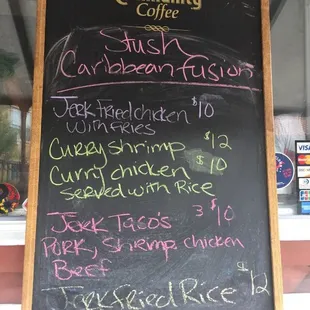 Community
Coffee
Stush
Caribbean fusion
Jerk Fried chicken $10
With Fries
Curry shrimp $12
Curry chicken $10
Served with Rice
Jerk Taco's 3 $10
Pork, Shrimp, chicken
Beef
Jerk Fried Rice $12
VISA